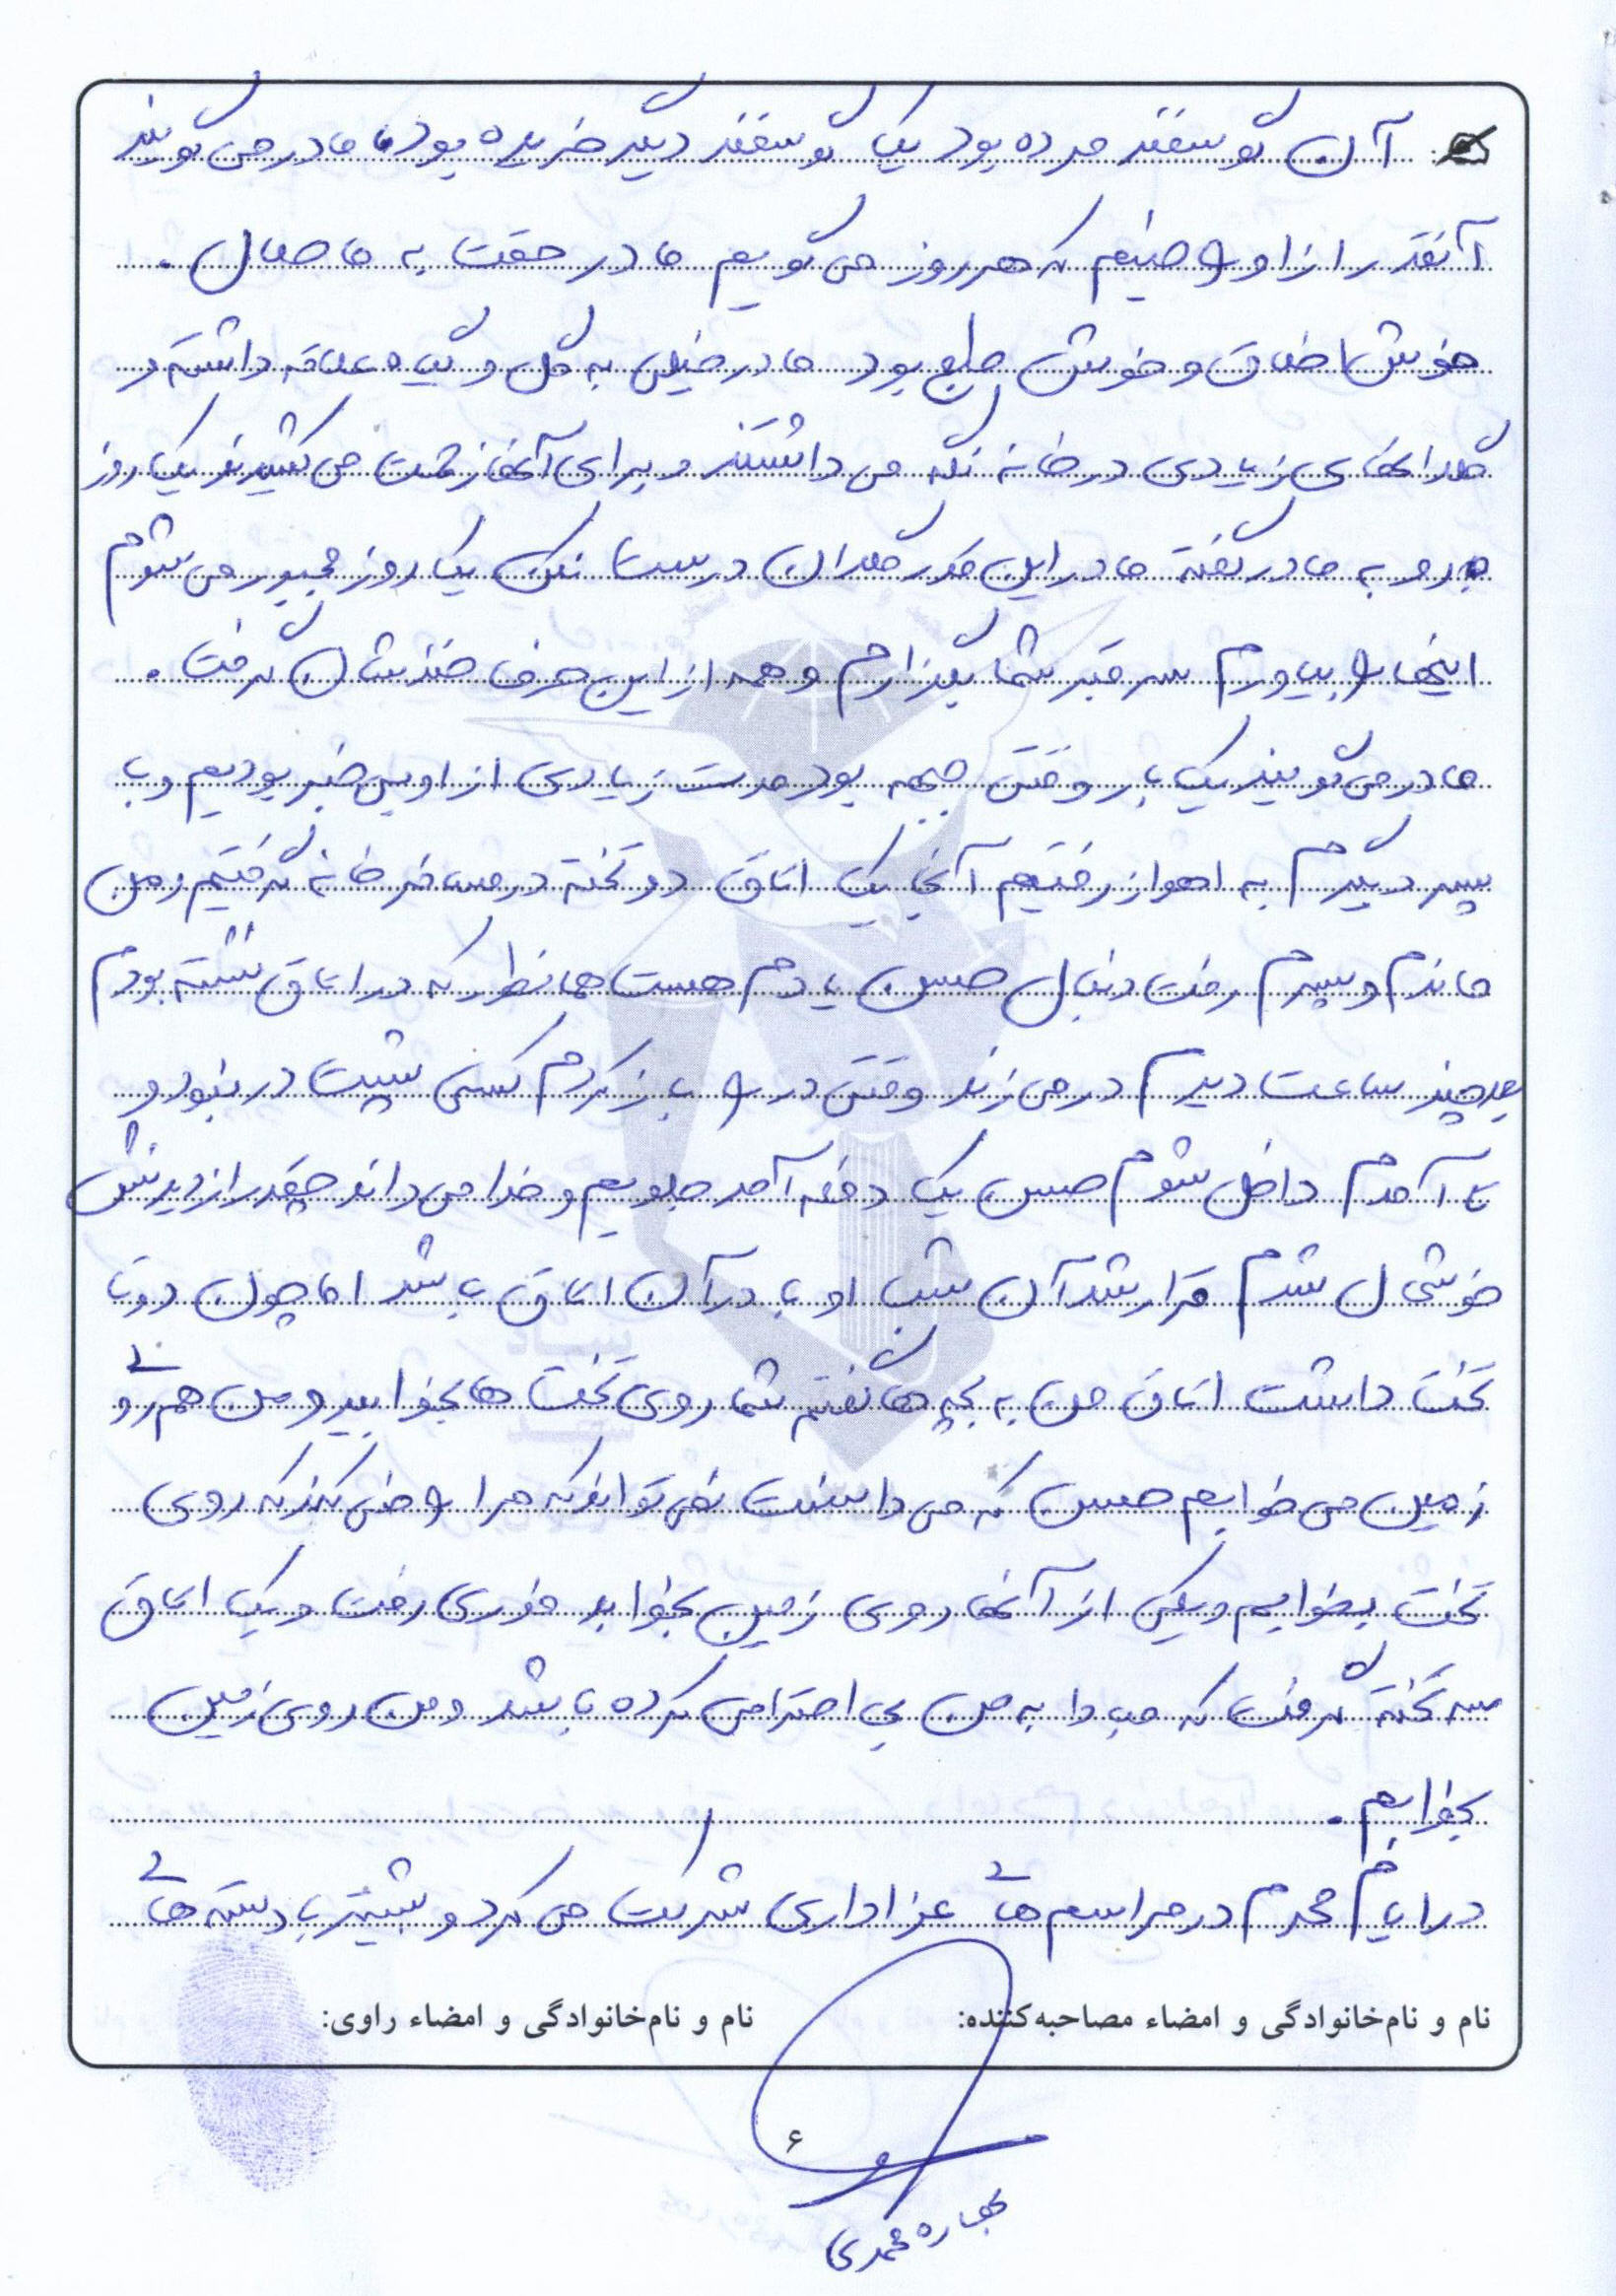 آن گوسفند مرده بود یک گوسفند دیگر خریده بود، مادر می گویند
آنقدر از او راضیم که هر روز می گویم مادر حقت به ما حلال.
خوش اخلاق و خوش بود مادر خیلی به گل و گیاه علاقه داشته و
گلدانهای زیادی در خانه نگه می داشتند و برای آنها زحمت می کشیدند یک روز
به مادر گفته مادر این قدر گلدان درست نکن یک روز مجبور می شوم
اینها را بیاورم سر قبر شما بگذارم و همه از این حرف خندیشان گرفت.
مادر می گویند یک بار وقتی جبهه بود مدت زیادی از او بی خبر بودیم و با
پسر دیگرم به اهواز رفتیم آنجا یک اتاق دو تخته در مسافرخانه گرفتیم و من
ماندم و پسرم رفت دنبال حسن یادم هست همانطور که در اتاق نشسته بودم
بعد چند ساعت دیدم در می زند وقتی در را باز کردم کسی پشت در نبود و
تا آمدم داخل شوم حسن یک دفعه آمد جلویم و خدا می داند چقدر از دیدنش
خوشحال شدم قرار شد آن شب او با در آن اتاق باشد اما چون دو تا
تخت داشت اتاق من به بچه ها گفتم شما روی تخت ها بخوابید و من هم رو
زمین می خوابم حسن که می دانست نمی تواند که مرا راضی کند که روی
تخت بخوابم و یکی از آنها روی زمین بخوابد فوری رفت و یک اتاق
سه تخته گرفت که مبادا به من بی احترامی کرده باشد و من روی زمین
بخوابم.
در ایام محرم در مراسم های عزاداری شرکت می کرد و بیشتر با دسته های
نام و نام‌خانوادگی و امضاء مصاحبه‌کننده: نام و نام‌خانوادگی و امضاء راوی:
۶
بهاره محمدی